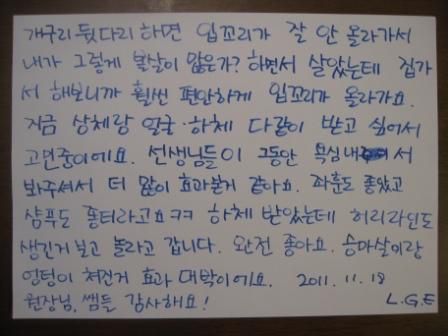 개구리 뒷다리 하면 입꼬리가 잘 안 올라가서
내가 그렇게 볼살이 많은가? 하면서 살았는데 집가
서 해보니까 훨씬 편안하게 입꼬리가 올라가요.
지금 상체랑 얼굴·하체 다같이 받고 싶어서
고민중이에요. 선생님들이 그동안 욕심내 서
봐주셔서 더 많이 효과본거 같아요. 좌훈도 좋았고
샴푸도 좋터라고요ㅋㅋ 하체 받았는데 허리라인도
생긴거 보고 놀라고 갑니다. 완전 좋아요. 승마살이랑
엉덩이 처진거 효과 대박이에요. 2011. 11. 18
원장님, 쌤들 감사해요! L.G.E